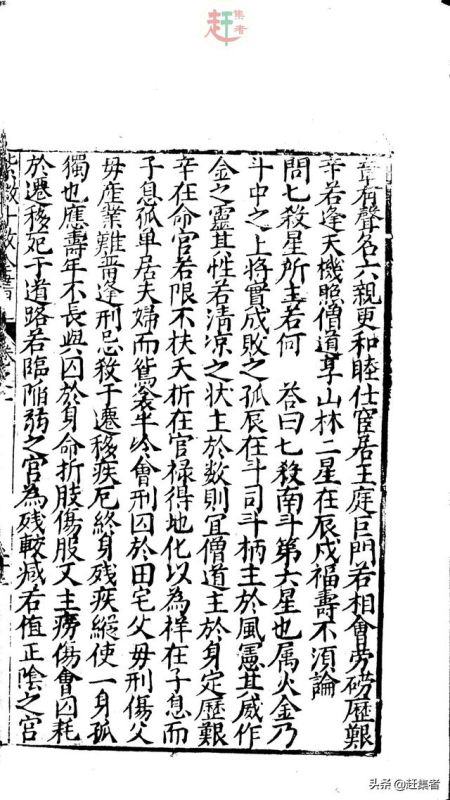 赶集者
章有聲名六親更和睦仕宦居王庭巨門若相會旁磅歷艱
辛若逢天機照僧道享山林二星在辰戌福壽不須論
問七殺星所主若何 荅曰七殺南斗第六星也属火金乃
斗中之上將實成敗之孤辰在斗司斗柄主於風憲其威作
金之靈其性若清凉之状主於数則宜僧道主於身定歷艱
辛在命官若限不扶夭折在官禄得地化以為祥在子息而
子息孤单居夫婦而鴛衾半冷會刑囚於田宅父毋刑傷父
毋産業難晋逢刑忌殺于遷移疾厄終身残疾縱使一身孤
獨也應壽年不長與囚於身命折肢傷股又主癆傷會囚耗
於遷移死于道路若臨陥弱之宫為残較减若值正陰之宫
紫微斗数全書 卷之一
头条 @赶集者